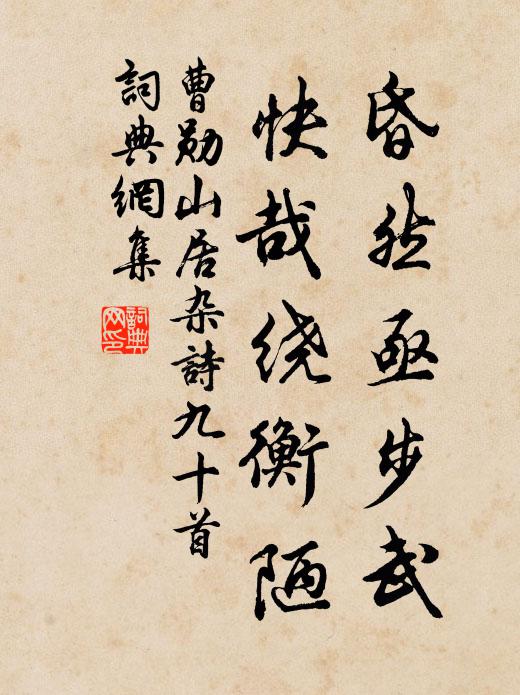 昏然亟步武
快哉绕衡陋
曹勋山居杂詩九十首
詞典網集
詞典网印